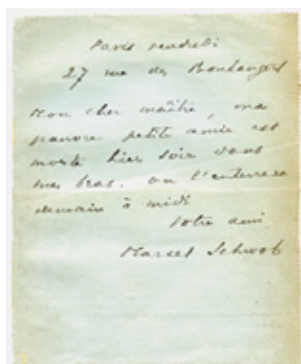 Paris vendredi
27 rue des Boulangers
Mon cher maître, ma
pauvre petite amie est
morte hier soir dans
mes bras. on l'enterrera
demain à midi
Votre ami
Marcel Schwob